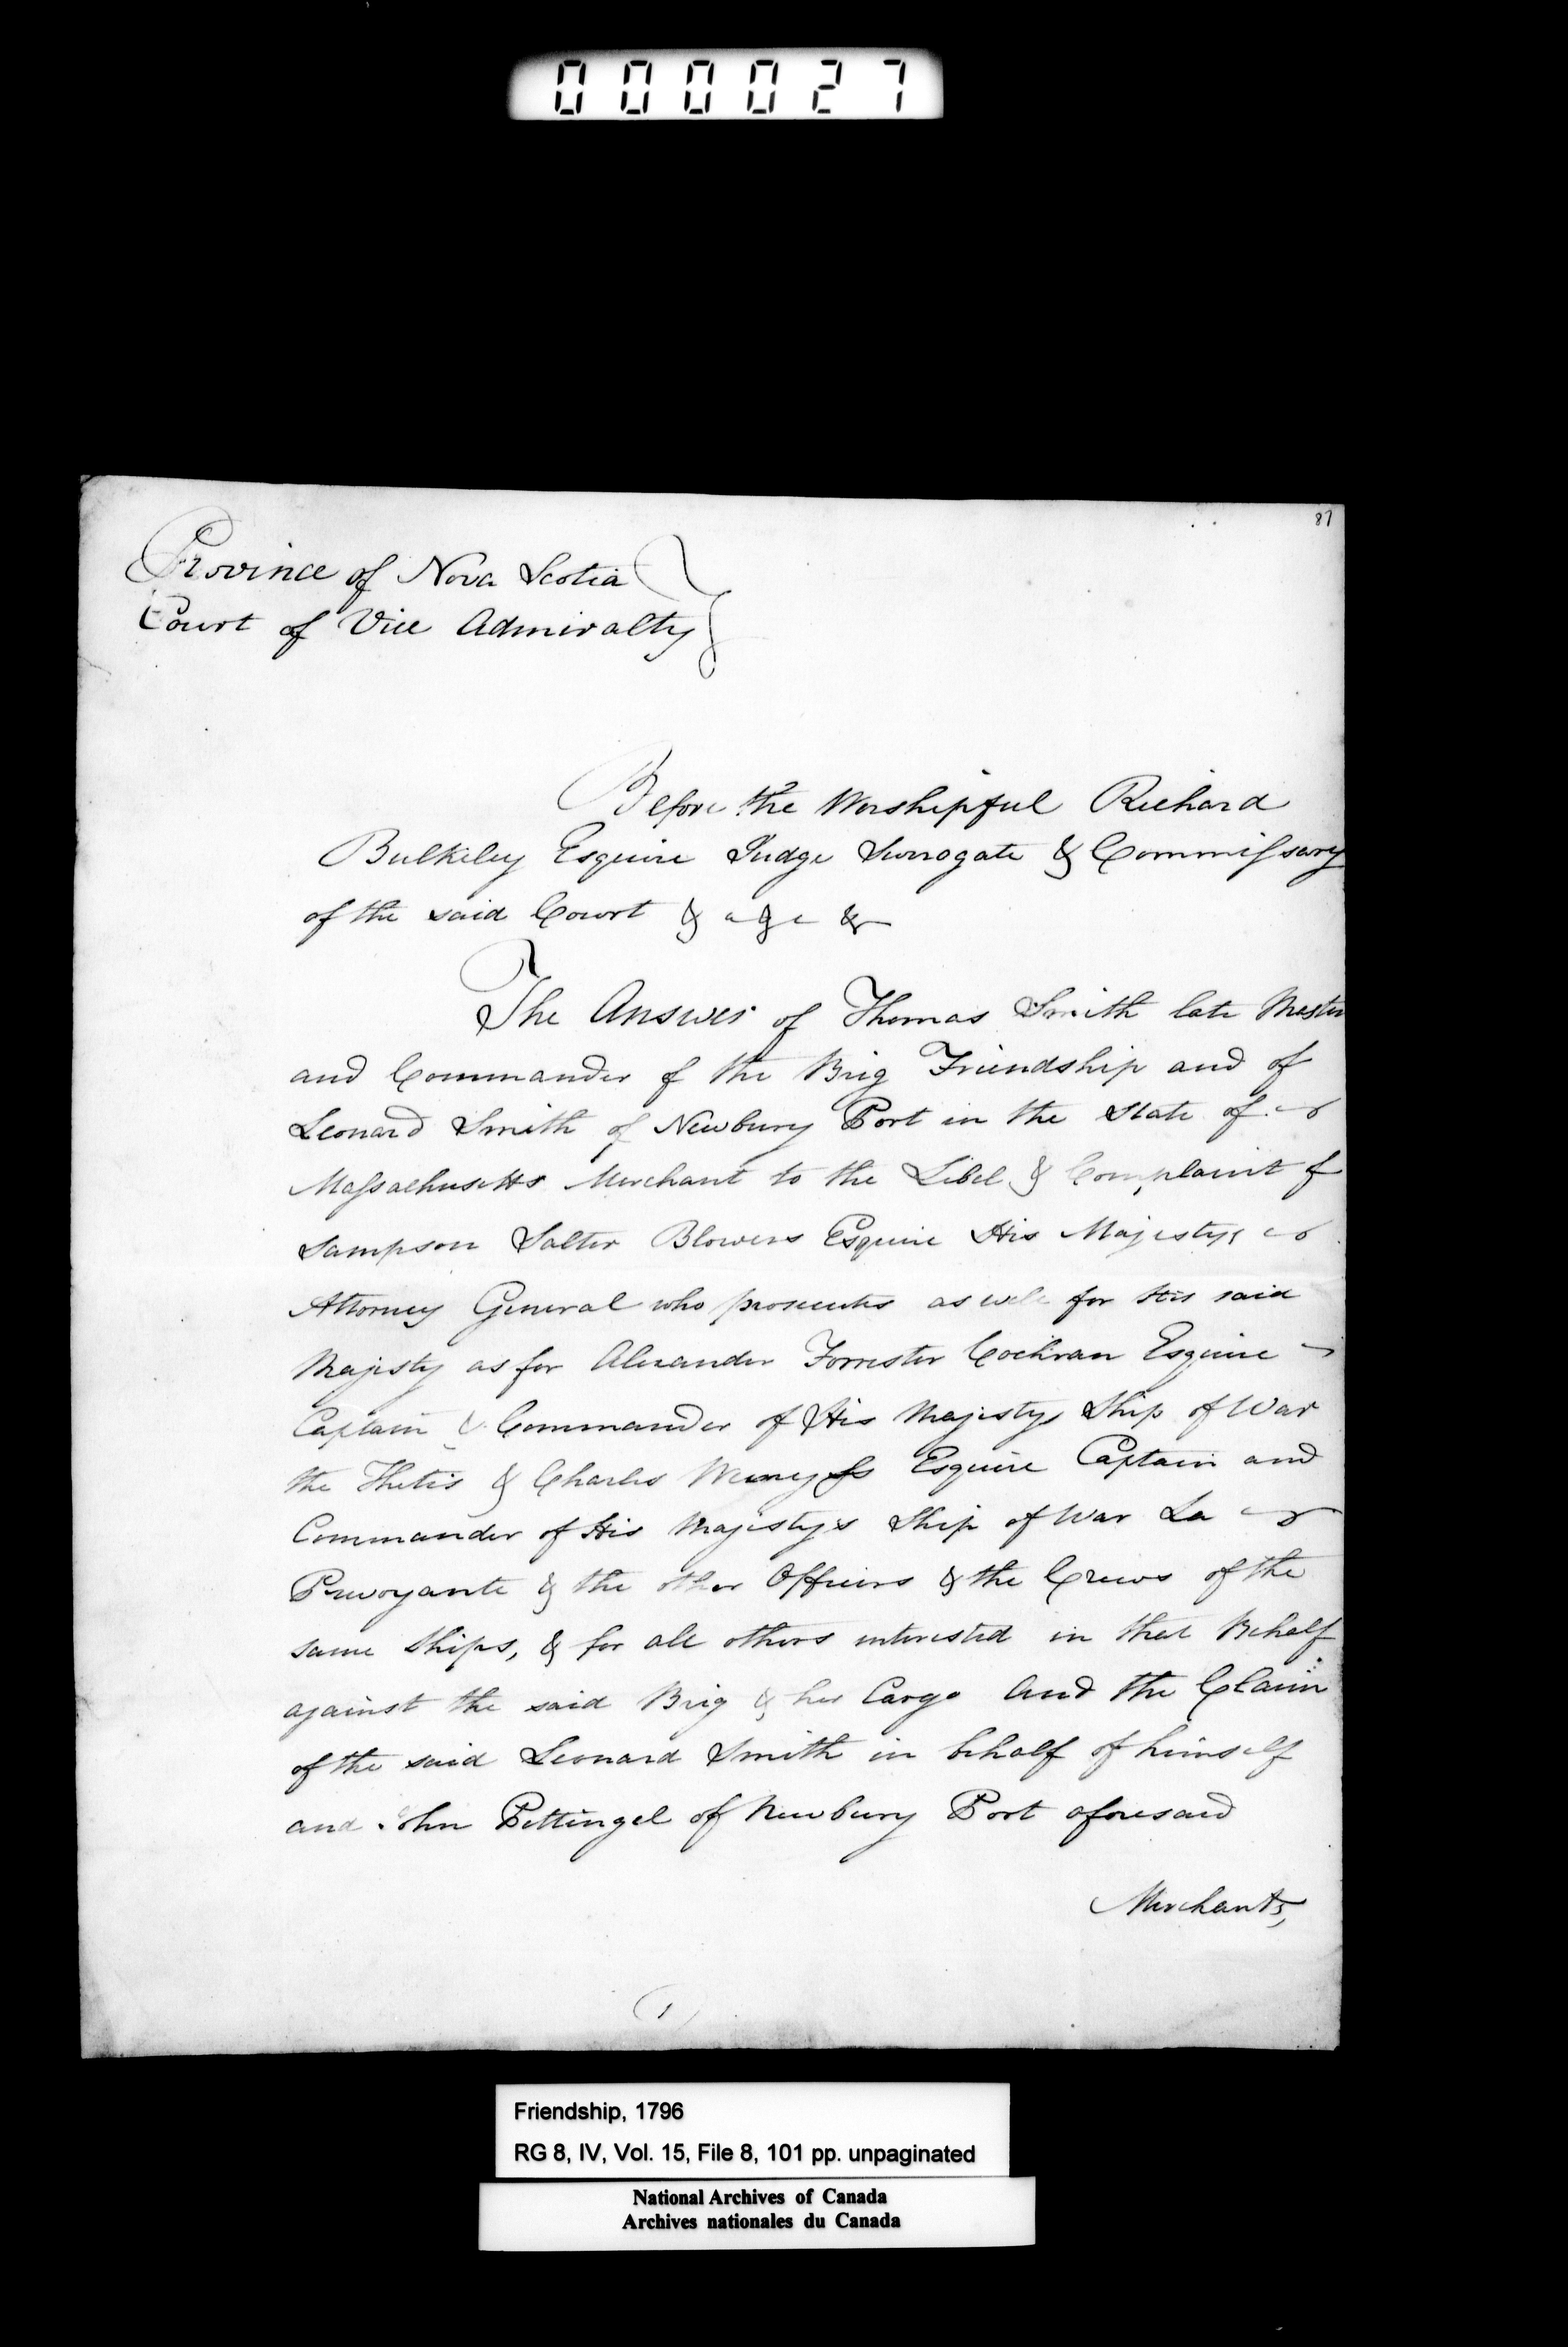 000027
87
Province of Nova Scotia
Court of Vice Admiralty
Before the Worshipful Richard
Bulkeley Esquire Judge Surrogate & Commissary
of the said Court &
The Answer of Thomas Smith late Master
and Commander of the Brig Friendship and of
Leonard Smith of Newbury Port in the State of
Massachusetts Merchant to the Libel & Complaint of
Sampson Salter Blowers Esquire His Majestys
Attorney General who prosecutes as well for His said
Majesty as for Alexander Forrester Cochran Esquire
Captain & Commander of His Majestys Ship of War
the Thetis & Charles Wemyss Esquire Captain and
Commander of His Majesty's Ship of War La
Prevoyante & the other Officers & the Crews of the
same Ships, & for all others interested in that Behalf
against the said Brig & her Cargo And the Claim
of the said Leonard Smith in behalf of himself
and John Pettingel of Newbury Port aforesaid
Merchants,
(1)
Friendship, 1796
RG 8, IV, Vol. 15, File 8, 101 pp. unpaginated
National Archives of Canada
Archives nationales du Canada